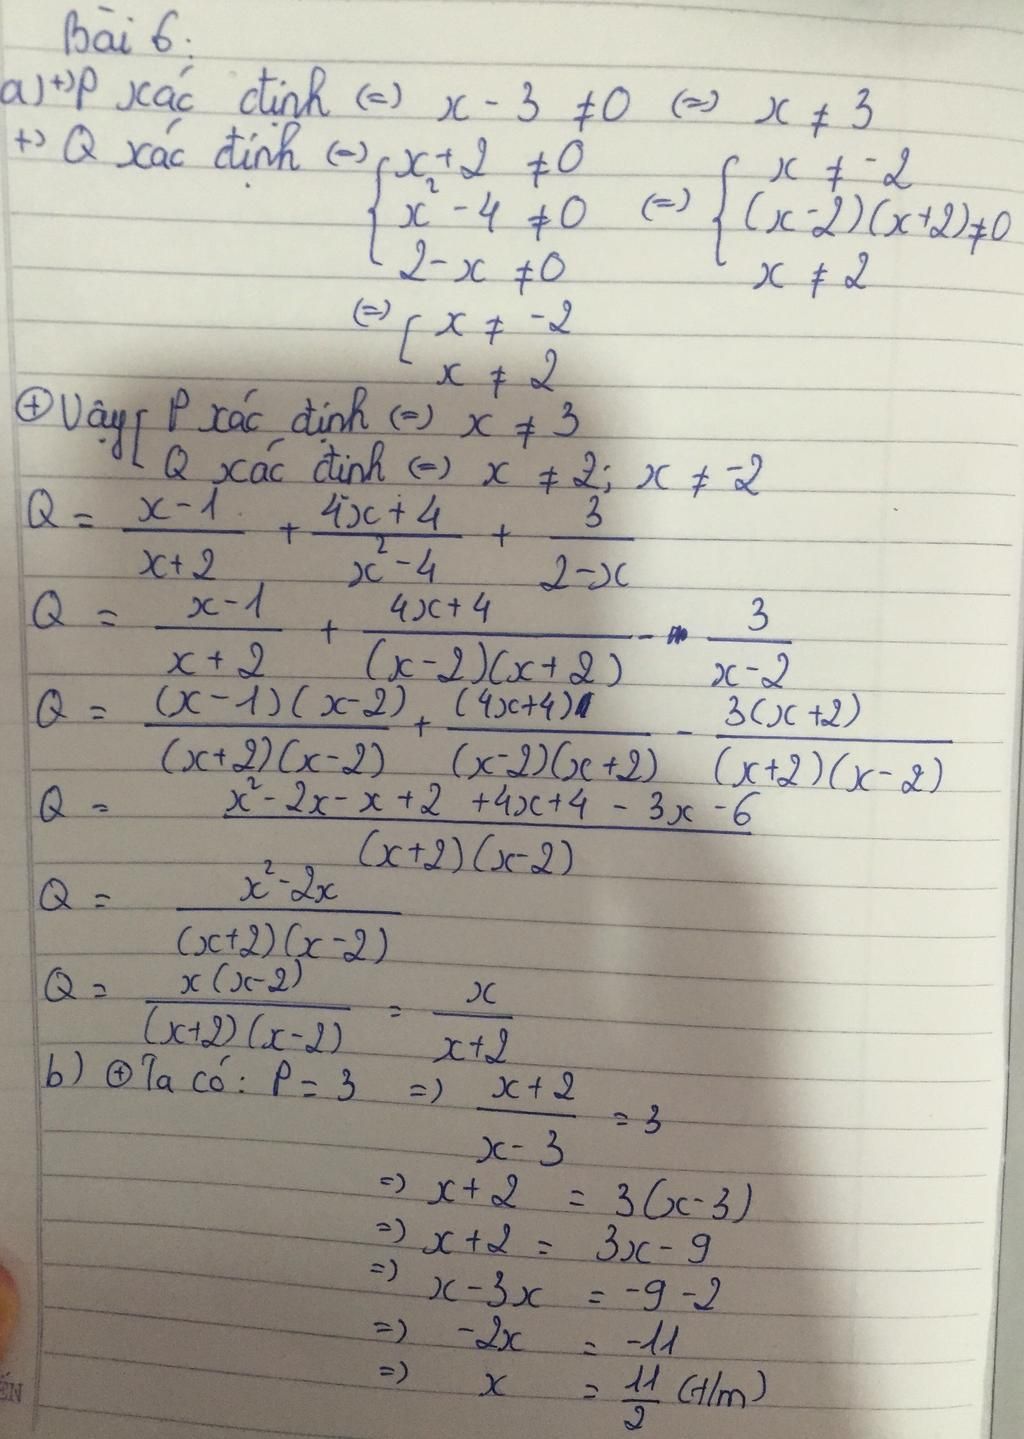 Bài 6:
a) +) P xác định (=) x - 3 ≠ 0 (=) x ≠ 3
+) Q xác định (=) { x + 2 ≠ 0 (=) { x ≠ -2
x² - 4 ≠ 0 (x-2)(x+2) ≠ 0
2 - x ≠ 0 x ≠ 2
(=) { x ≠ -2
x ≠ 2
⊕ Vậy { P xác định (=) x ≠ 3
Q xác định (=) x ≠ 2; x ≠ -2
Q = (x-1)/(x+2) + (4x+4)/(x²-4) + 3/(2-x)
Q = (x-1)/(x+2) + (4x+4)/((x-2)(x+2)) - 3/(x-2)
Q = (x-1)(x-2)/((x+2)(x-2)) + (4x+4)/((x-2)(x+2)) - 3(x+2)/((x+2)(x-2))
Q = (x²-2x-x+2+4x+4-3x-6)/((x+2)(x-2))
Q = (x²-2x)/((x+2)(x-2))
Q = x(x-2)/((x+2)(x-2)) = x/(x+2)
b) ⊕ Ta có: P = 3 =) (x+2)/(x-3) = 3
=) x+2 = 3(x-3)
=) x+2 = 3x-9
=) x-3x = -9-2
=) -2x = -11
=) x = 11/2 (t/m)